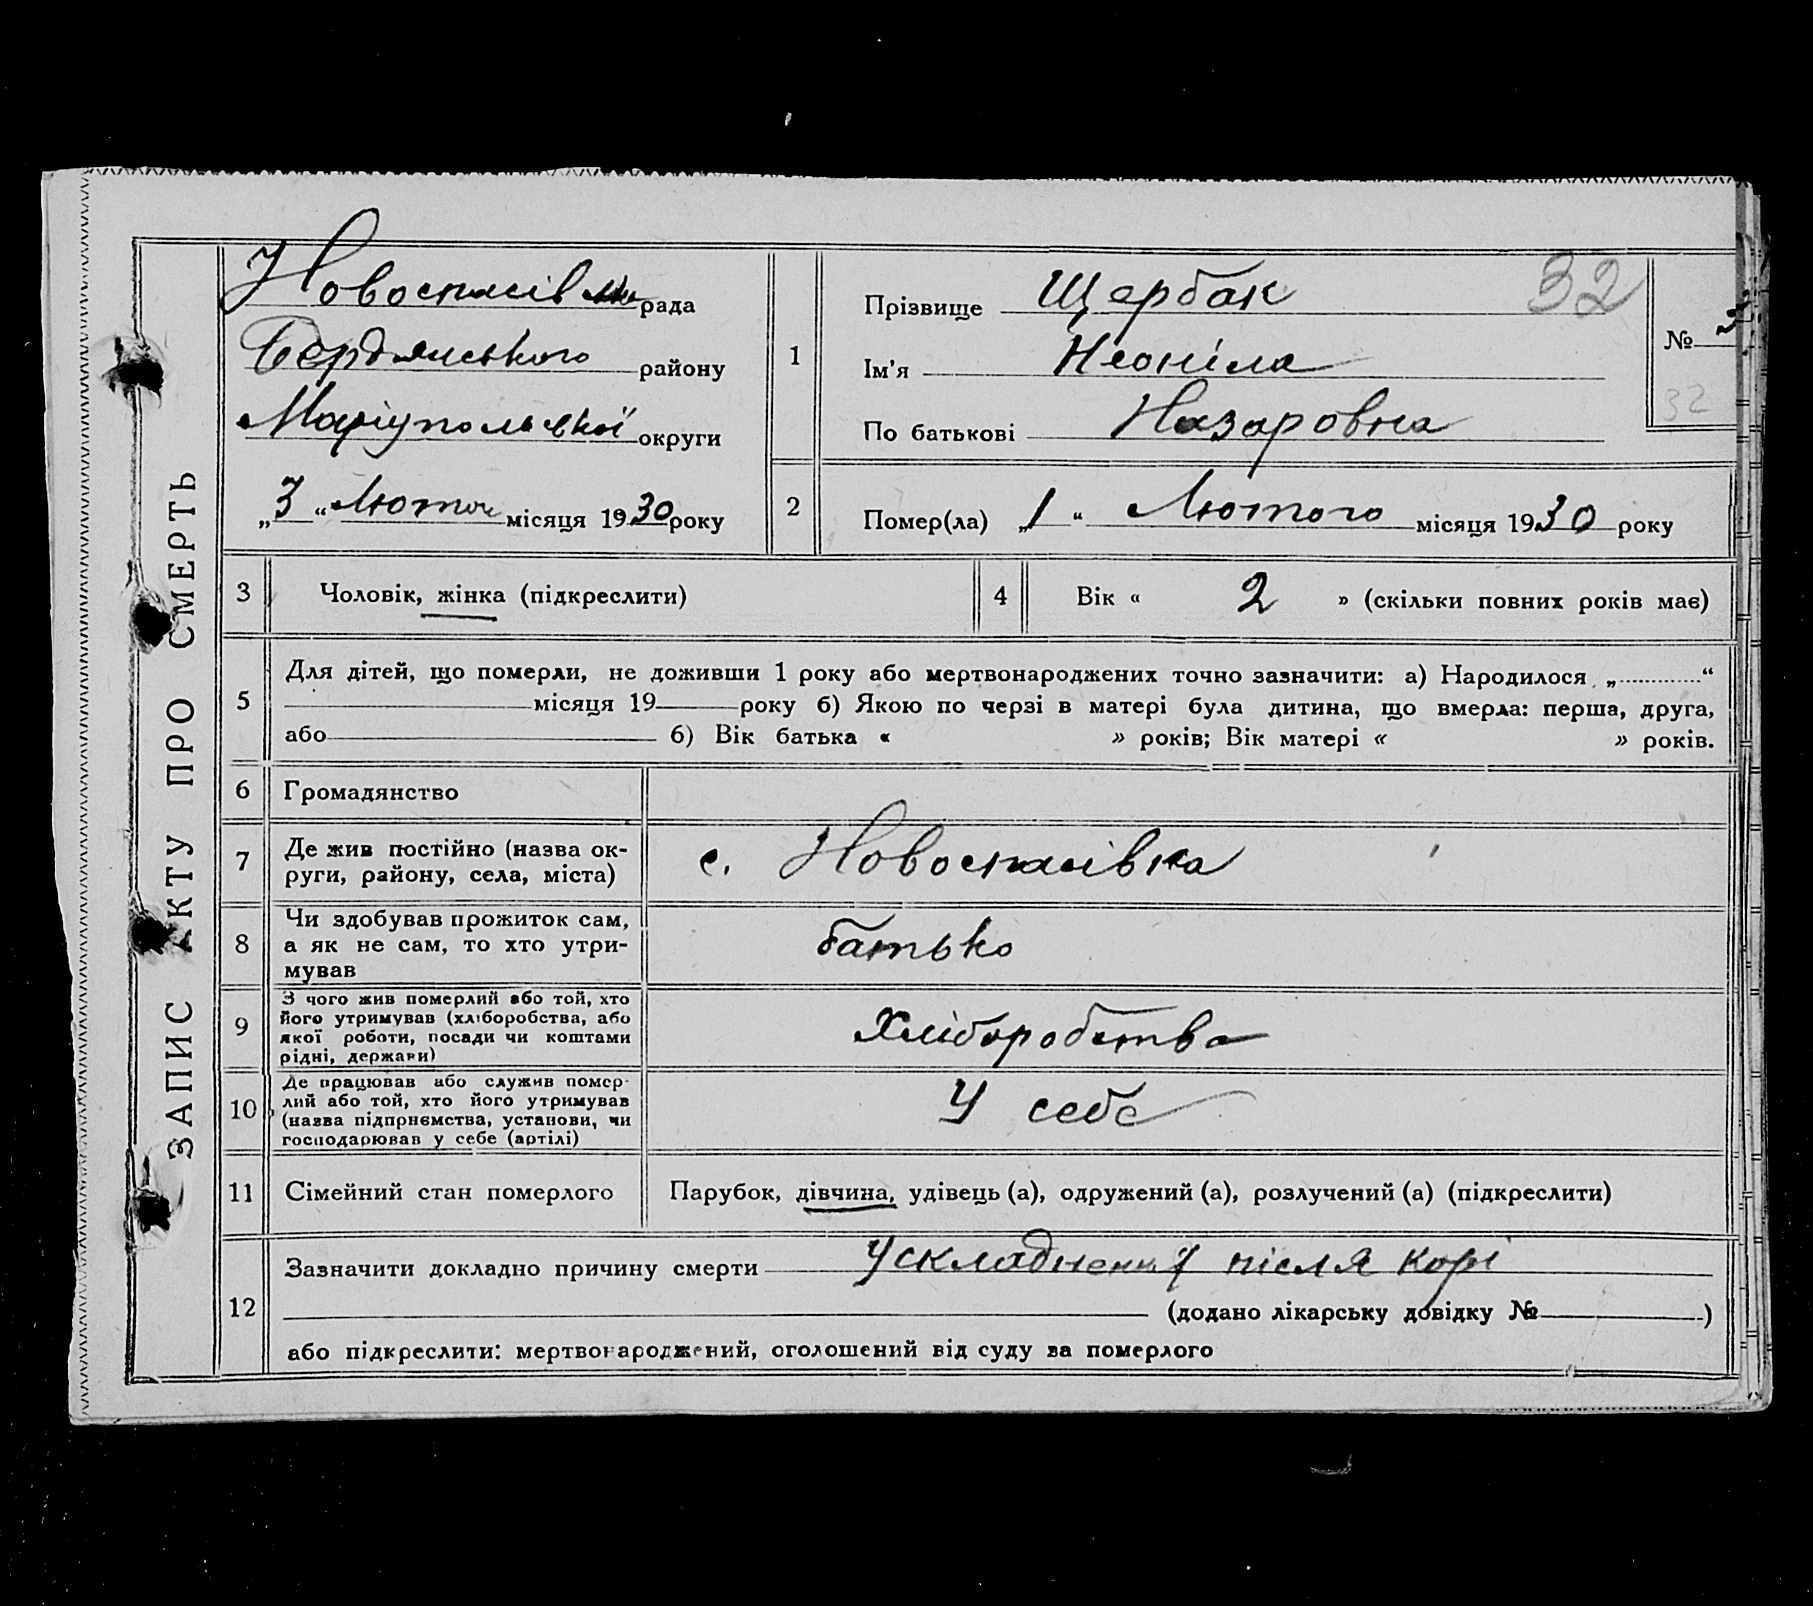 ЗАПИС АКТУ ПРО СМЕРТЬ
Новоспасівська рада
Бердянського району
Маріупольської округи
„3“ Лютого місяця 1930 року
1
Прізвище Щербак
Ім'я Неоніла
По батькові Назаровна
32
№ 3
32
2
Помер(ла) „1“ Лютого місяця 1930 року
3
Чоловік, жінка (підкреслити)
4
Вік « 2 » (скільки повних років має)
5
Для дітей, що померли, не доживши 1 року або мертвонароджених точно зазначити: а) Народилося „ “
місяця 19 року б) Якою по черзі в матері була дитина, що вмерла: перша, друга,
або б) Вік батька « » років; Вік матері « » років.
6
Громадянство
7
Де жив постійно (назва ок-
руги, району, села, міста)
с. Новоспасівка
8
Чи здобував прожиток сам,
а як не сам, то хто утри-
мував
батько
9
З чого жив померлий або той, хто
його утримував (хліборобства, або
якої роботи, посади чи коштами
рідні, держави)
Хліборобства
10
Де працював або служив помер-
лий або той, хто його утримував
(назва підприємства, установи, чи
господарював у себе (артілі)
У себе
11
Сімейний стан померлого
Парубок, дівчина, удівець (а), одружений (а), розлучений (а) (підкреслити)
12
Зазначити докладно причину смерти Ускладнення після корі
(додано лікарську довідку № )
або підкреслити: мертвонароджений, оголошений від суду за померлого